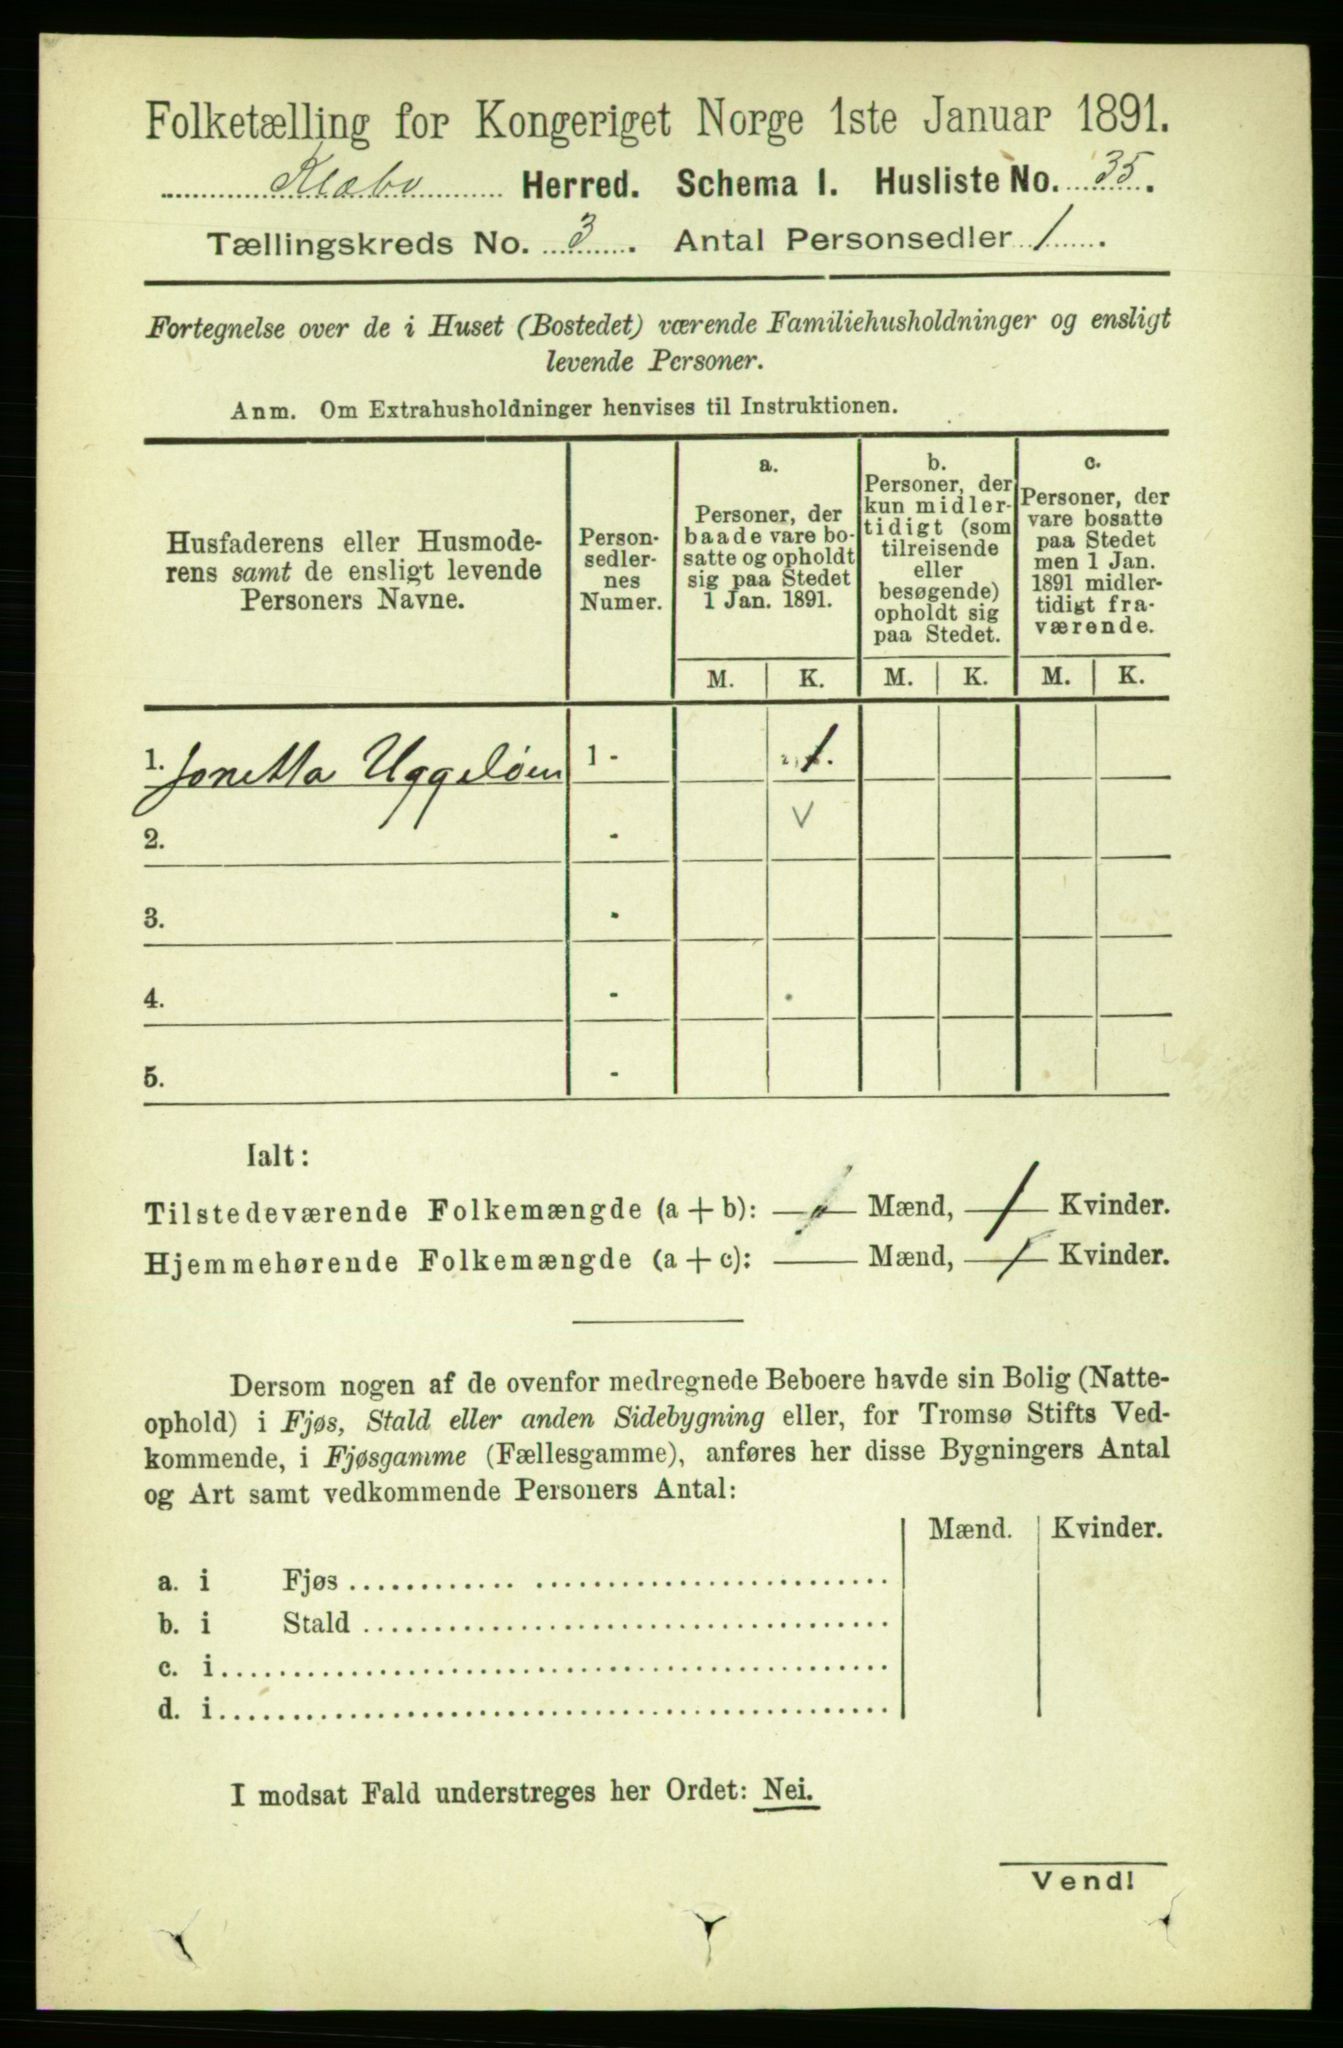 Folketælling for Kongeriget Norge 1ste Januar 1891.
Klæbo Herred. Schema 1. Husliste No. 35.
Tællingskreds No. 3. Antal Personsedler 1.
Fortegnelse over de i Huset (Bostedet) værende Familiehusholdninger og ensligt
levende Personer.
Anm. Om Extrahusholdninger henvises til Instruktionen.
Husfaderens eller Husmode-
rens samt de ensligt levende
Personers Navne.
Person-
sedler-
nes
Numer.
a.
Personer, der
baade vare bo-
satte og opholdt
sig paa Stedet
1 Jan. 1891.
b.
Personer, der
kun midler-
tidigt (som
tilreisende
eller
besøgende)
opholdt sig
paa Stedet.
c.
Personer, der
vare bosatte
paa Stedet
men 1 Jan.
1891 midler-
tidigt fra-
værende.
M. K. M. K. M. K.
1. Jonetta Uggelöen 1 - 1.
2. - V
3. -
4. -
5. -
Ialt:
Tilstedeværende Folkemængde (a + b): — Mænd, 1 Kvinder.
Hjemmehørende Folkemængde (a + c): — Mænd, 1 Kvinder.
Dersom nogen af de ovenfor medregnede Beboere havde sin Bolig (Natte-
ophold) i Fjøs, Stald eller anden Sidebygning eller, for Tromsø Stifts Ved-
kommende, i Fjøsgamme (Fællesgamme), anføres her disse Bygningers Antal
og Art samt vedkommende Personers Antal:
Mænd. Kvinder.
a. i Fjøs
b. i Stald
c. i
d. i
I modsat Fald understreges her Ordet: Nei.
Vend!